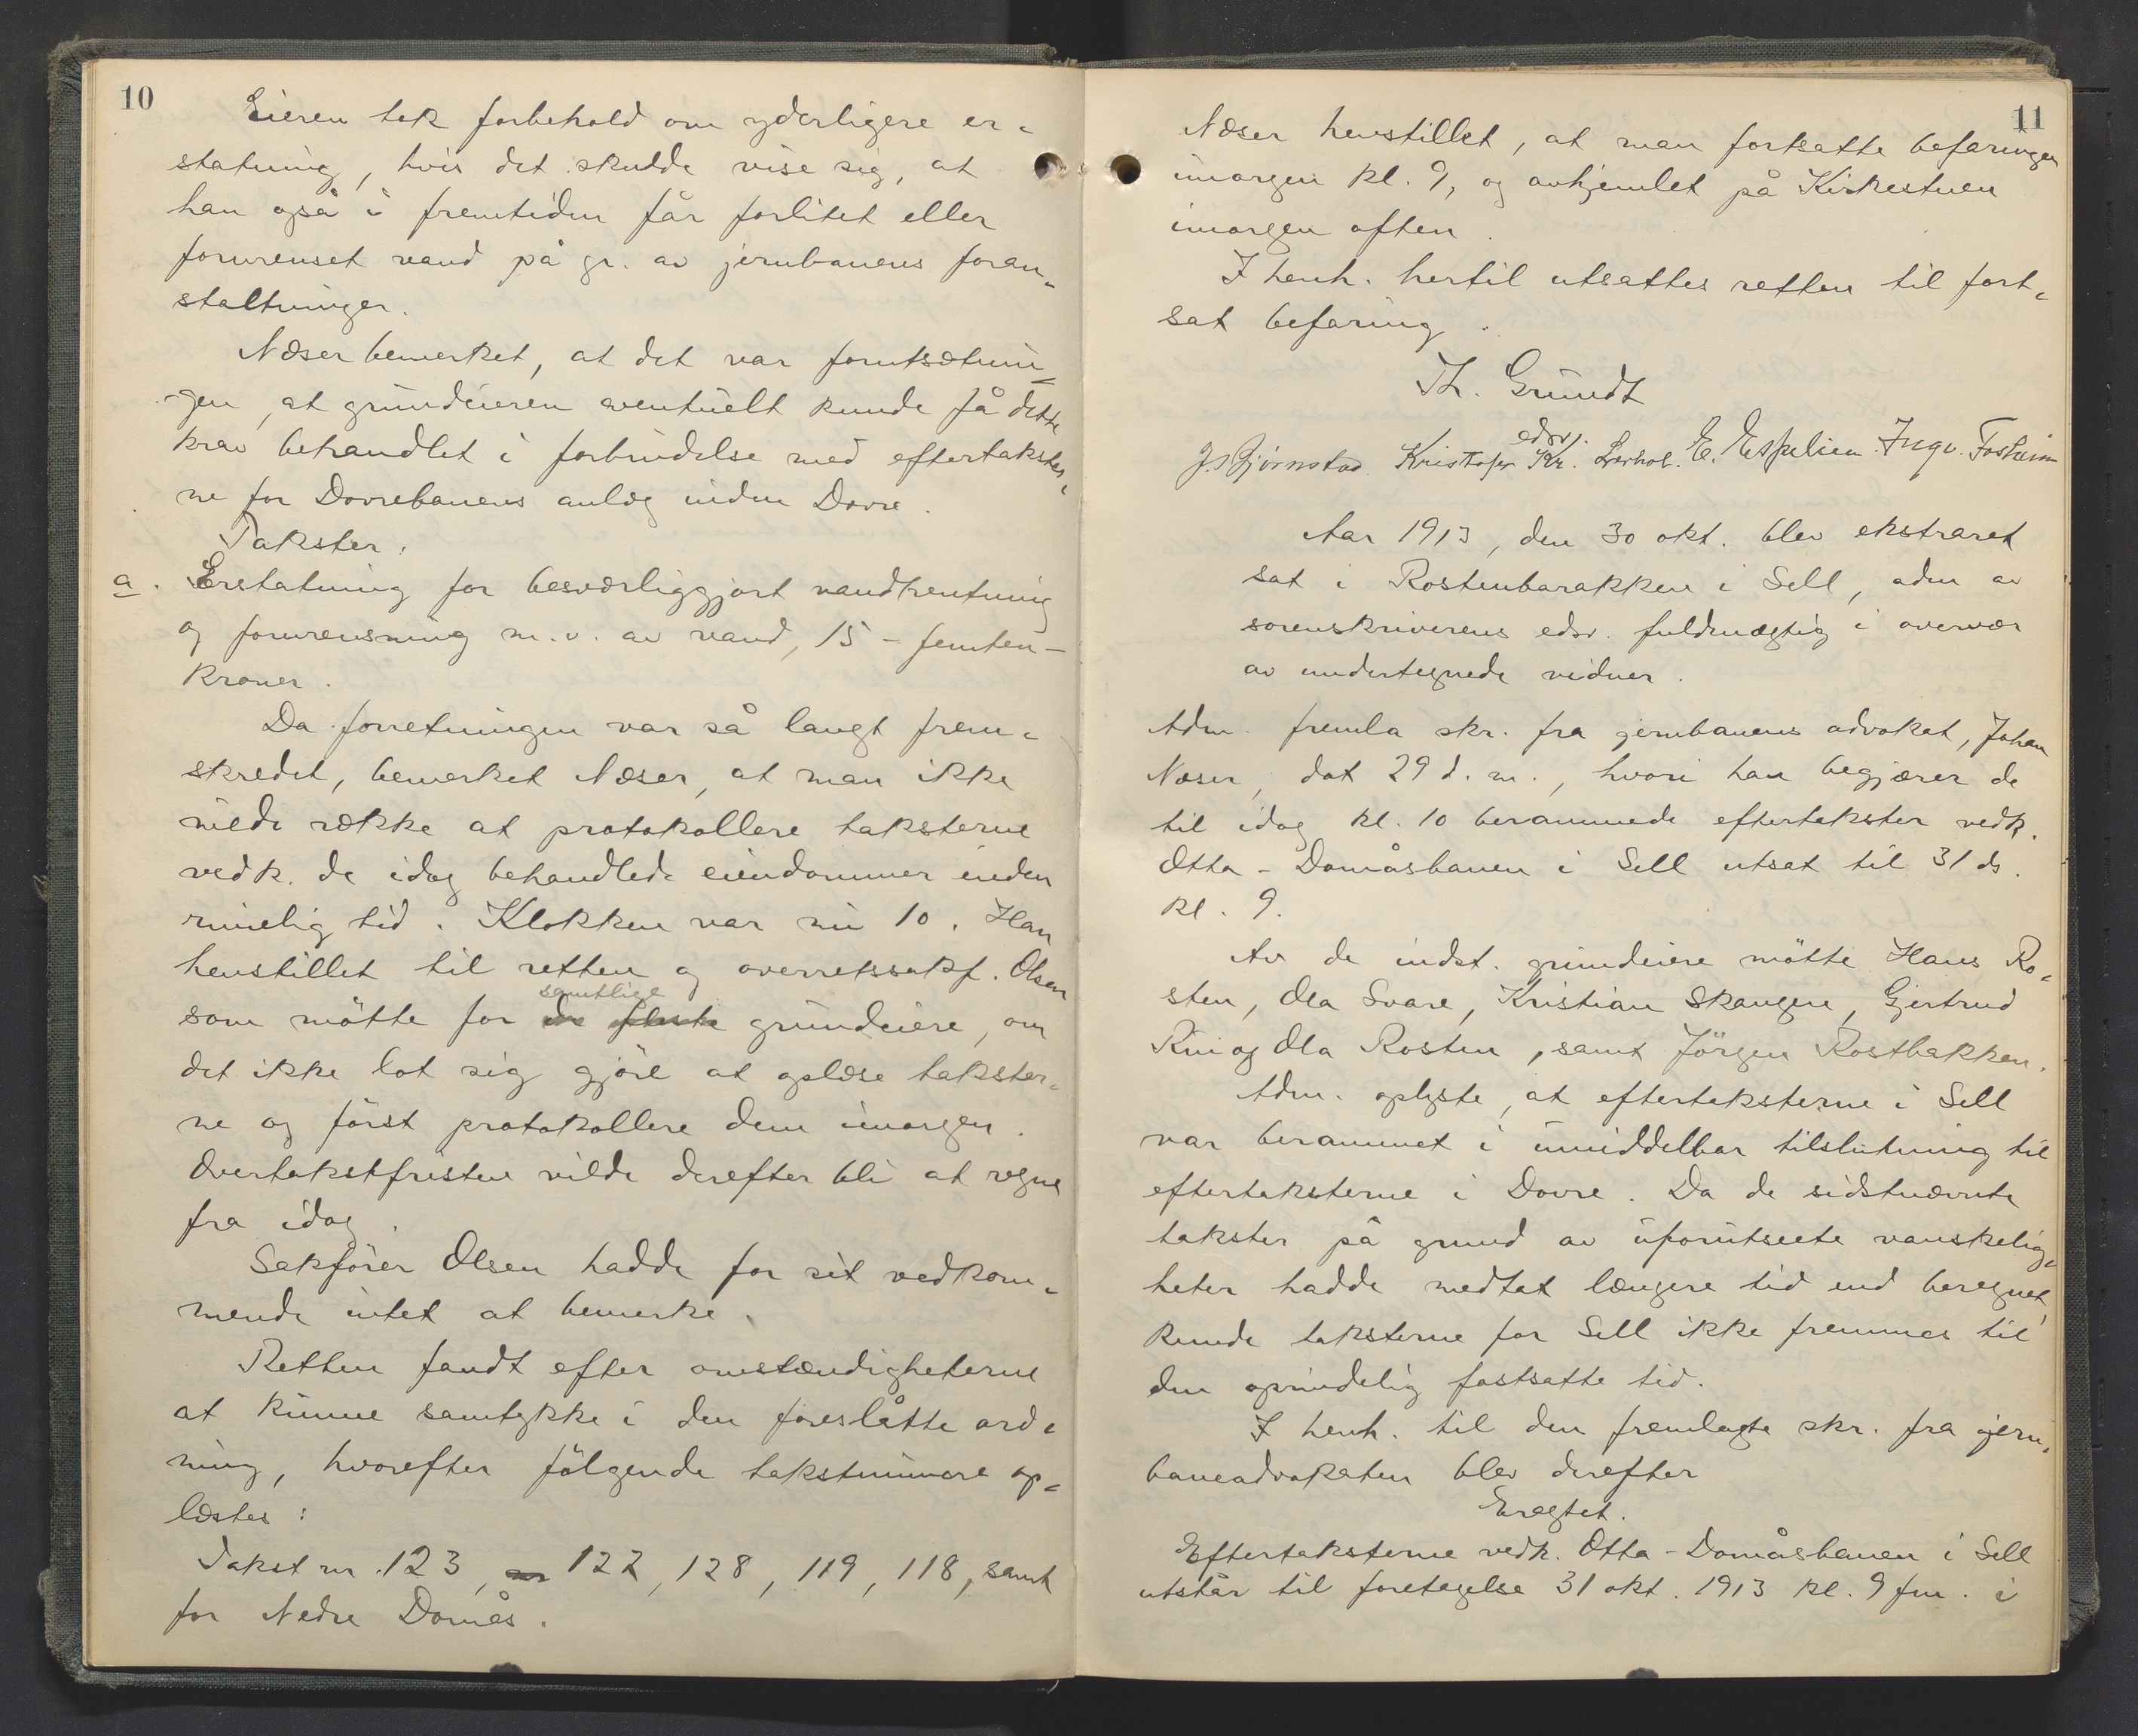 10
Eieren tok forbehold om yderligere er-
statning, hvis det skulde vise sig, at
han også i fremtiden får forlitet eller
forurenset vand på gr. av jernbanens foran-
staltninger.
Næser bemerket, at det var forutsætnin-
gen, at grundeieren eventuelt kunde få dette
krav behandlet i forbindelse med eftertakster-
ne for Dovrebanens anlæg inden Dovre.
Takster:
a. Erstatning for besværliggjort vandhentning
og forurensning m.v. av vand, 15 - femten -
kroner.
Da forretningen var så langt frem-
skredet, bemerket Næser, at man ikke
vilde række at protokollere taksterne
vedk. de idag behandlede eiendommer inden
rimelig tid. Klokken var nu 10. Han
henstillet til retten og overretssakf. Olsen
samtlige
som møtte for de fleste grundeiere, om
det ikke lot sig gjøre at oplæse takster-
ne og først protokollere dem imorgen.
Overtakstfristen vilde derefter bli at regne
fra idag.
Sakfører Olsen hadde for sit vedkom-
mende intet at bemerke.
Retten fandt efter omstændigheterne
at kunne samtykke i den foreslåtte ord-
ning, hvorefter følgende takstnumere op-
læstes:
Takst nr. 123, 122, 128, 119, 118, samt
for Nedre Domås.
11
Næser henstillet, at man fortsatte befaringen
imorgen kl. 9, og avhjemlet på Kirkestuen
imorgen aften.
I henh. hertil utsattes retten til fort-
sat befaring.
Th. Grundt
edsv.
J. Bjørnstad Kristofer Kr. Lerhol. E. Espelien Ingv. Fosheim
Aar 1913, den 30 okt. blev ekstraret
sat i Rostenbarakken i Sell, adm av
sorenskriverens edsv. fuldmægtig i overvær
av undertegnede vidner.
Adm. fremla skr. fra jernbanens advokat, Johan
Næser, dat 29 d.m., hvori han begjærer de
til idag kl. 10 berammede eftertakster vedk.
Otta - Domåsbanen i Sell utsat til 31 ds.
kl. 9.
Av de indst. grundeiere møtte Hans Ro-
sten, Ola Svare, Kristian Skangen, Gjertrud
Rui og Ola Rosten, samt Jörgen Rostbakken.
Adm. oplyste, at eftertaksterne i Sell
var berammet i umiddelbar tilslutning til
eftertaksterne i Dovre. Da de sidstnævnte
takster på grund av uforutseete vanskelig-
heter hadde medtat længere tid end beregnet,
kunde taksterne for Sell ikke fremmes til
den oprindelig fastsatte tid.
I henh. til den fremlagte skr. fra jern-
baneadvokaten blev derefter
Eragtet.
Eftertaksterne vedk. Otta - Domåsbanen i Sell
utstår til foretagelse 31 okt. 1913 kl. 9 fm. i